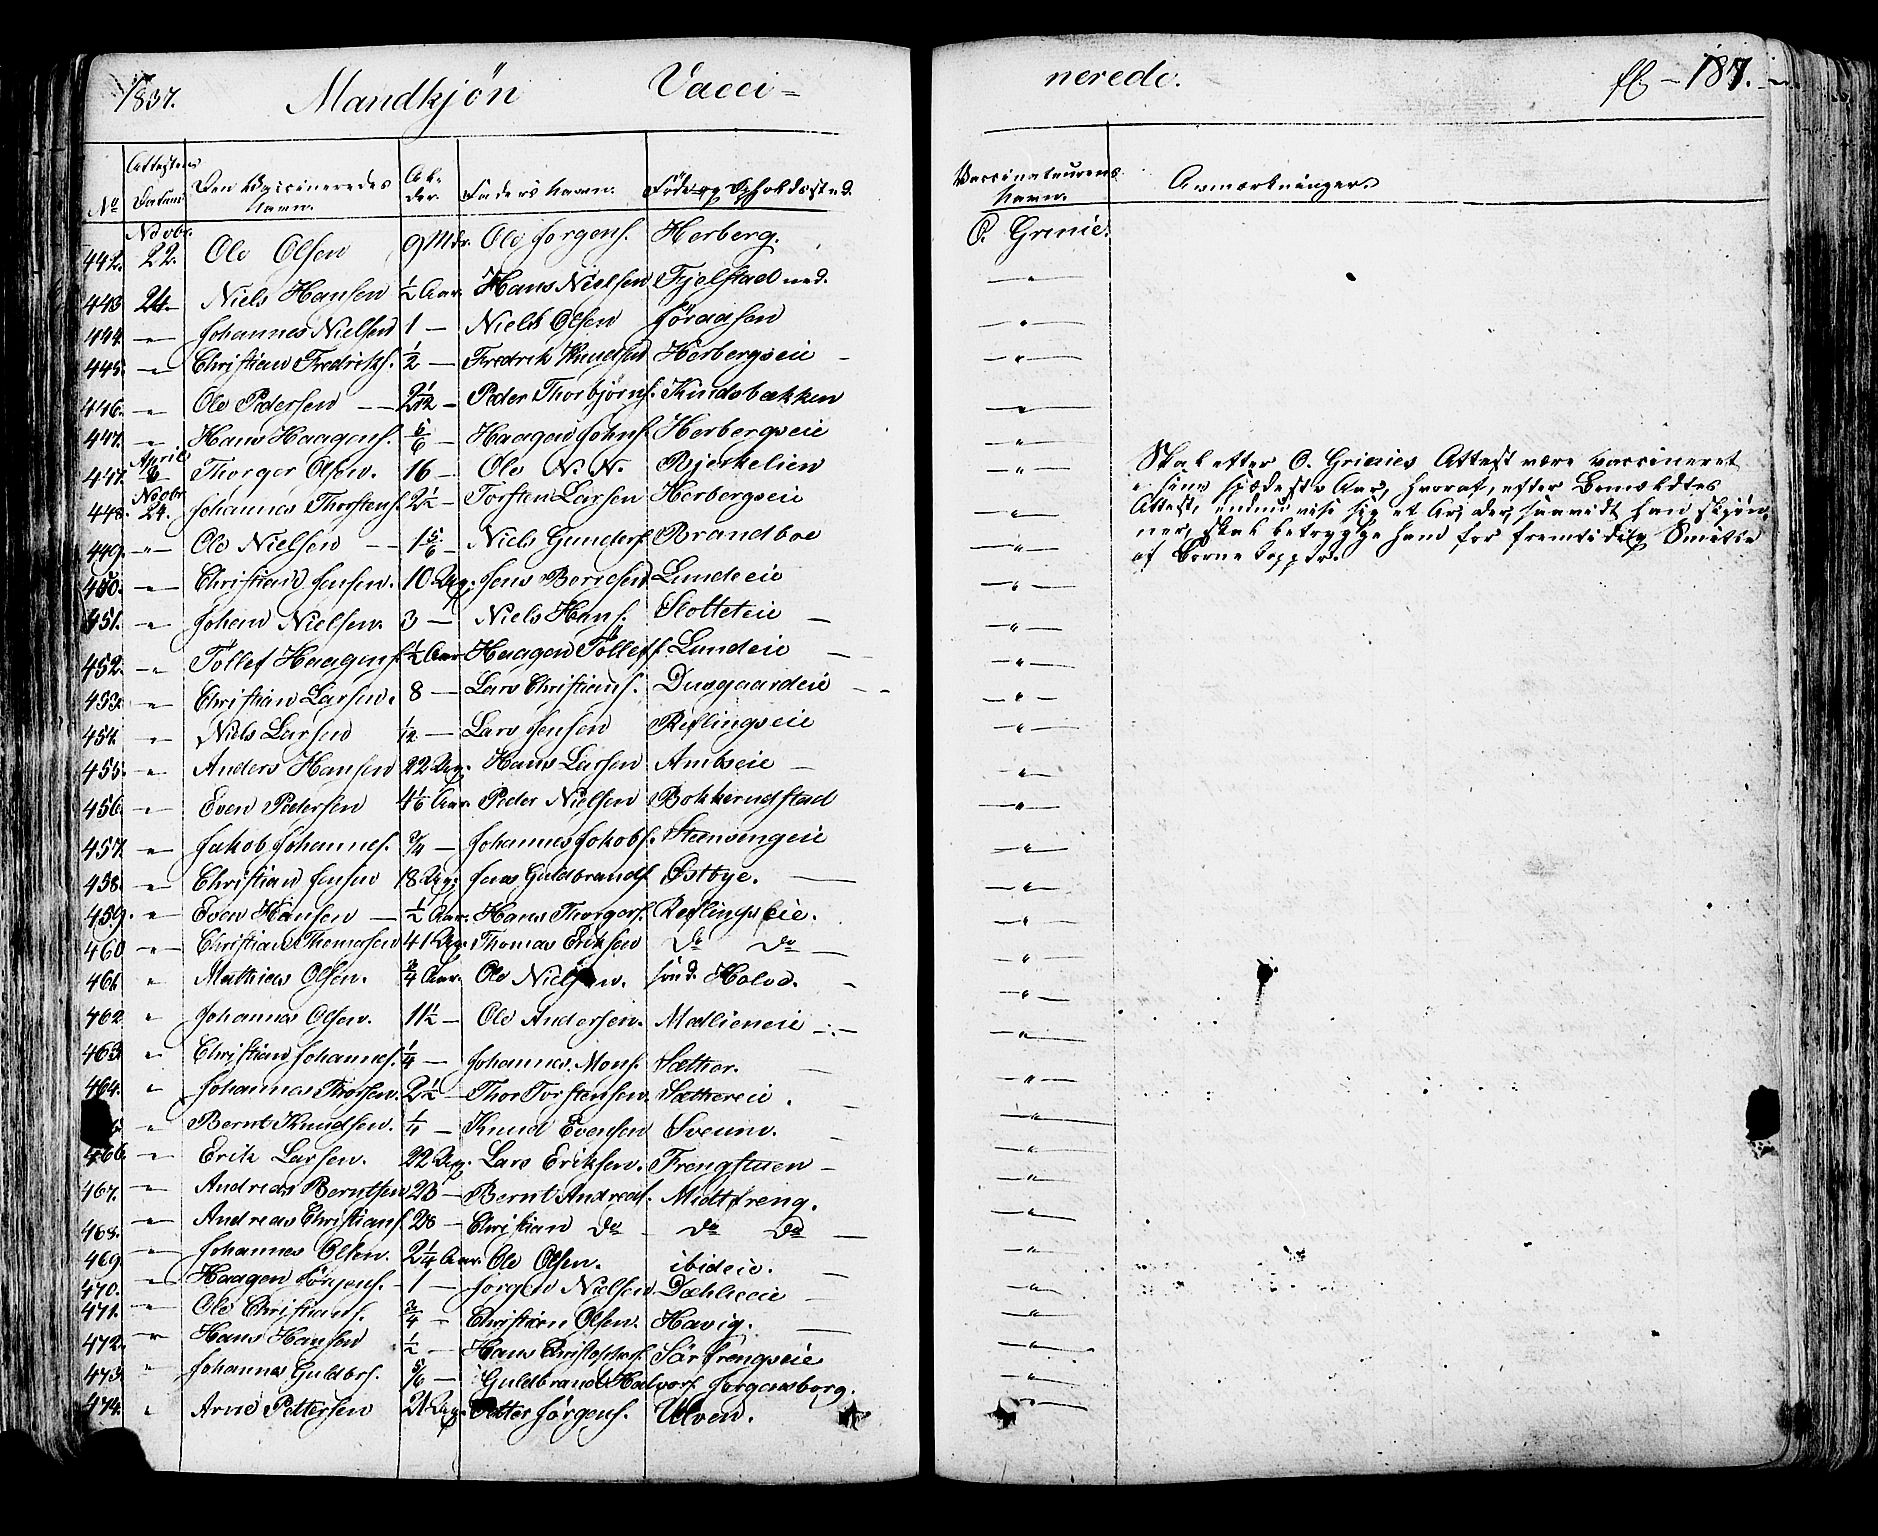 1837. Mandkjøn Vacci= nerede. fl - 187.
No Attestens Datum Den Vaccineredes Navn. Al- der. Faders Navn. Føde og Opholdssted. Vaccinateurens Navn. Anmærkninger.
442. Novbr. 22. Ole Olsen 9 Mdr. Ole Jørgens. Herberg. O. Grinie.
443 24. Niels Hansen 1/2 Aar. Hans Nielsen Fjelstad ned. —"—
444. —"— Johannes Nielsen 1 — Niels Olsen Søraasen —"—
445. —"— Christian Fredriks. 1/2 — Fredrik Knudsen Herbergseie —"—
446. —"— Ole Pedersen 2 1/12 — Peder Thorbjørns. Kindsbækken —"—
447. —"— Hans Haagens. 5/6 — Haagen Johns. Herbergseie —"—
447. April 6 Thorger Olsen. 16 — Ole N. N. Bjerkelien —"— Skal efter O. Grinies Attest være vaccineret
448. Novbr. 24. Johannes Thorstens. 2 1/2 — Torsten Larsen Herbergseie —"— i sine spædeste Aar, hvoraf, efter Bemældtes
Attest, endnu vise sig et Ar, der, saavidt han skjøn-
449. —"— Ole Nielsen 1 5/6 — Niels Gunders. Brandboe —"— ner, skal betrygge ham for fremtidig Smitte
af Børnekopper.
450. —"— Christian Jensen. 10 Ug. Jens Boresen Lundeeie —"—
451. —"— Johan Nielsen. 3 — Niels Hans. Slotteteie —"—
452. —"— Tollef Haagens. 1/2 Aar Haagen Tollefs. Lundeie —"—
453. —"— Christian Larsen. 8 — Lars Christians. Dusgaardeie —"—
454. —"— Niels Larsen 1/12 — Lars Jensen Reflingseie —"—
455. —"— Anders Hansen 22 Ug. Hans Larsen Amtseie —"—
456. —"— Even Pedersen 4 1/6 Aar. Peder Nielsen Bokkerudstad —"—
457. —"— Jakob Johannes. 3/4 — Johannes Jakobs. Steensengeie —"—
458. —"— Christian Jensen 18 Ug. Jens Guldbrands. Østbye. —"—
459. —"— Even Hansen 1/2 Aar. Hans Thorgers. Reflingseie. —"—
460 —"— Christian Thomasen 41 Ug. Thomas Eriksen Do Do —"—
461. " Mathias Olsen. 3/4 Aar. Ole Nielsen. sønd. Holve. —"—
462 " Johannes Olsen. 11 1/2 — Ole Andersen. Mælieneie —"—
463. " Christian Johannes. 1/4 — Johannes Mons. Sæther. —"—
464. " Johannes Thorsen. 2 1/2 — Thor Torstensen. Sæthereie. —"—
" Bernt Knudsen. 1/4 — Knud Evensen Sveum. —"—
466. —"— Erik Larsen. 22 Ug. Lars Eriksen. Frengstuen —"—
467. —"— Andreas Berntsen 23 — Bernt Andreas. Midtfreng. —"—
468. —"— Andreas Christians. 28 — Christian Do Do Do —"—
469. —"— Johannes Olsen. 2 1/4 Aar. Ole Olsen. ibideie. —"—
470. —"— Haagen Jørgens. 1 — Jørgen Nielsen Dæhlieeie —"—
471. —"— Ole Christians. 3/4 — Christian Olsen. Havig. —"—
472. —"— Hans Hansen 1/2 — Hans Christophers. Sørfrengseie —"—
473. " Johannes Guldbrs. 5/6 — Guldbrand Halvors. Jørgensborg. —"—
474. " Arne Pettersen 21 Ug. Petter Jørgens. Ulven. —"—